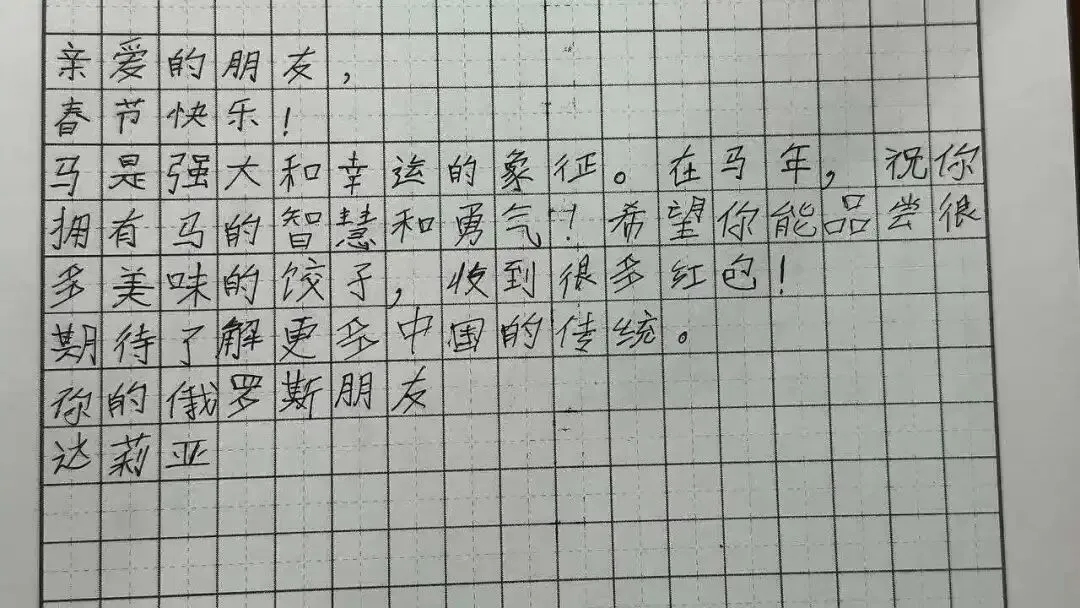 亲爱的朋友，
春节快乐！
马是强大和幸运的象征。在马年，祝你
拥有马的智慧和勇气！希望你能品尝很
多美味的饺子，收到很多红包！
期待了解更多中国的传统。
你的俄罗斯朋友
达莉亚